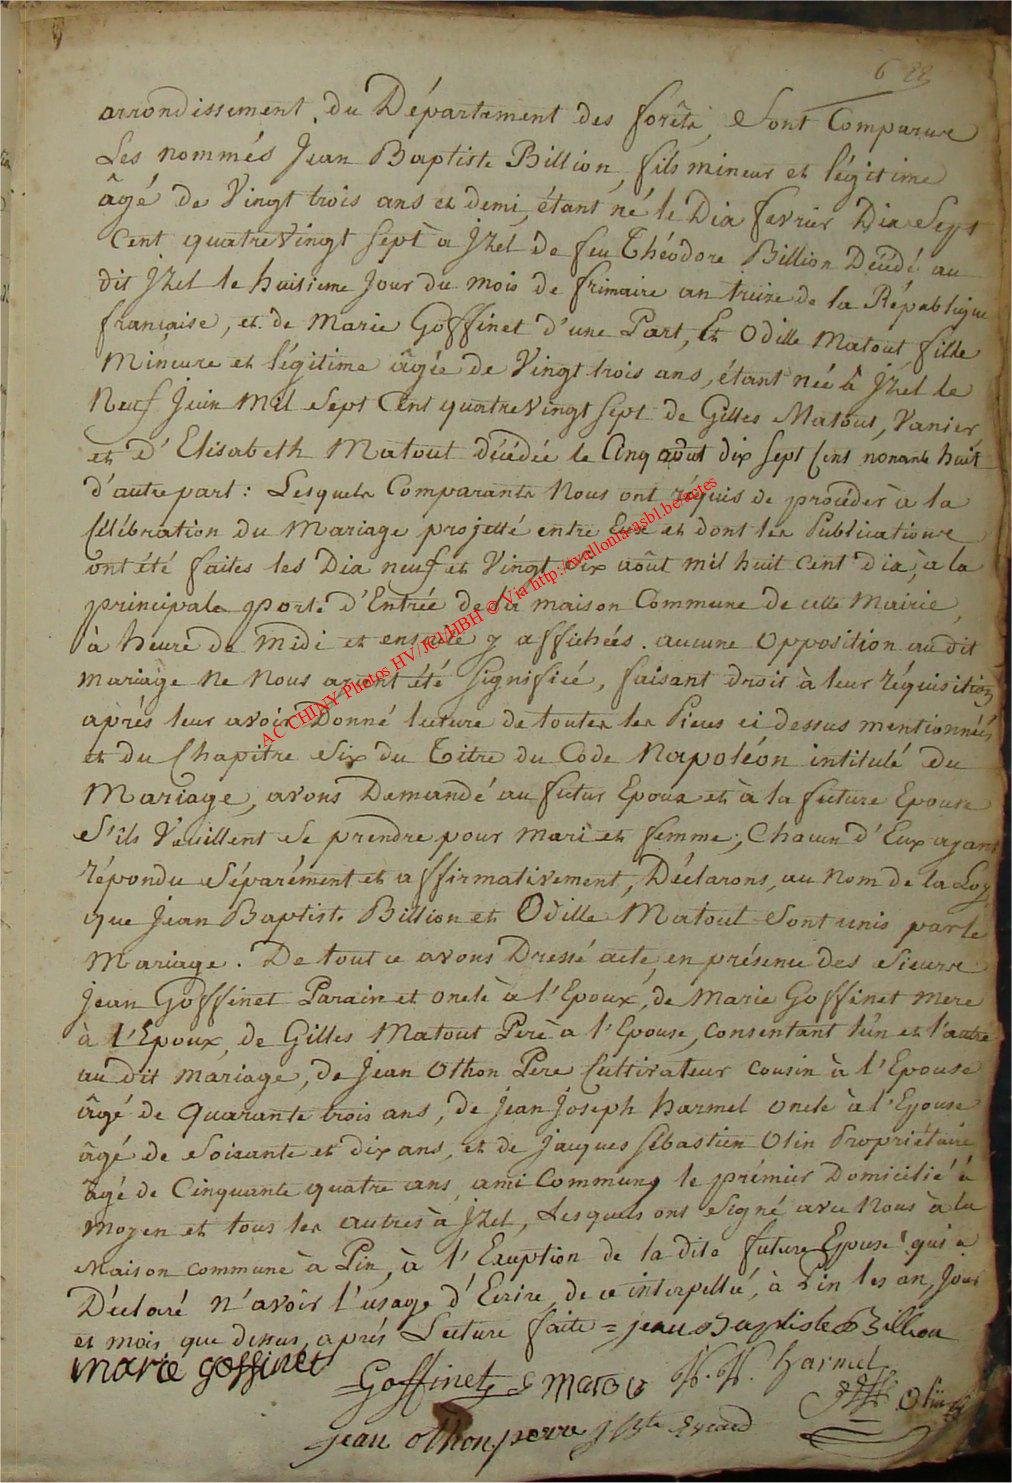 6 22
arrondissement du Département des forêts, Sont Comparus
Les nommés Jean Baptiste Billion, fils mineur et légitime
âgé de Vingt trois ans et demi, étant né le Dix fevrier Dix Sept
Cent quatre Vingt Sept à Jzel de feu Théodore Billion Décédé au
dit Jzel le huitieme Jour du mois de frimaire an treize de la Républiqu
française, et de Marie Goffinet d'une Part, Et Odille Matout fille
Mineure et légitime âgée de Vingt trois ans, étant née à Jzel le
Neuf Juin Mil Sept Cent quatre Vingt Sept de Gilles Matout, Vanier
et d'Elisabeth Matout décédée le Cinq août dix Sept Cent nonante huit
d'autre part : Lesquels Comparants Nous ont réquis de procéder à la
Célébration du Mariage projetté entre Eux et dont les Publications
ont été faites les Dix neuf et Vingt six août mil huit cent dix, à la
principale porte d'Entrée de la maison Commune de cette Mairie,
à heure de Midi et ensuite y affichées. aucune Opposition au dit
mariage Ne Nous ayant été Signifiée, faisant droit à leur réquisition
aprés leur avoir Donné lecture de toutes les Pieces ci dessus mentionnées
et du Chapitre Six du Titre du Code Napoléon intitulé Du
Mariage, avons Demandé au futur Epoux et à la future Epouse
S'ils Veuillent Se prendre pour Mari et femme; Chacun d'Eux ayant
répondu Séparément et affirmativement, Déclarons, au Nom de la Loy
que Jean Baptiste Billion et Odille Matout Sont unis par le
Mariage. De tout ce avons Dressé acte, en présence des Sieurs
Jean Goffinet Parain et oncle à l'Epoux, de Marie Goffinet mere
à l'Epoux, de Gilles Matout Pere à l'Epouse, Consentant l'un et l'autre
au dit mariage, de Jean Othon Pere Cultivateur cousin à l'Epouse
âgé de Quarante trois ans, de Jean Joseph harmel oncle à l'Epouse
âgé de Soixante et dix ans, et de Jacques Sébastien Olin Propriétaire
âgé de Cinquante quatre ans, ami Commun, le prémier Domicilié à
Moyen et tous les autres à Jzel, Lesquels ont Signé avec Nous à la
Maison commune à Pin, à l'Exuption de la dite future Epouse qui a
Déclaré n'avoir l'usage d'Ecrire, de ce interpellée, à Pin les an, Jour
et mois que dessus, aprés Lecture faite = jean Baptiste Billion
marie goffinet
Goffinet g matou harmel
Olin
jean othon perre
AC CHINY Photos HV/JCI/HBH © Via http://wallonia-asbl.be/actes